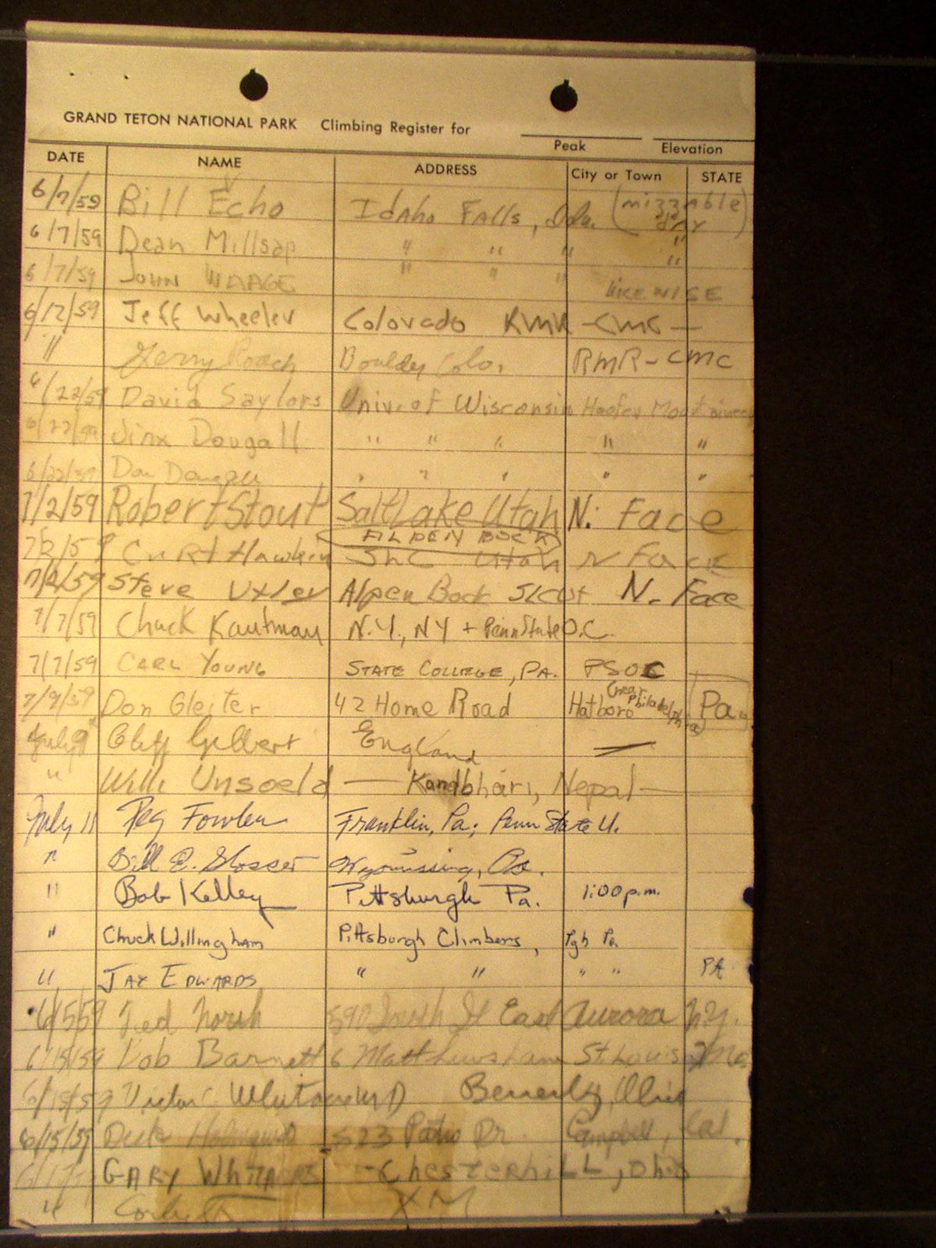 GRAND TETON NATIONAL PARK Climbing Register for
Peak Elevation
DATE NAME ADDRESS City or Town STATE
6/7/59 Bill Echo Idaho Falls, Ida. (mizzable day)
6/7/59 Dean Millsap " " " "
6/7/59 JOHN WAAGE " " " " LIKEWISE
6/12/59 Jeff Wheeler Colorado RMR - CMC -
" Gerry Roach Boulder Colo. RMR - CMC
6/22/59 David Saylors Univ. of Wisconsin Hoofer Mountaineers
6/22/59 Jinx Dougall " " " " "
6/22/59 Don " " " " "
7/2/59 Robert Stout Salt Lake Utah N. Face
ALPEN BOCK
7/2/59 Curt Hawkins SLC Utah N Face
7/2/59 Steve Alpen Bock SLCUt N. Face
7/7/59 Chuck Kaufman N.Y., NY + Penn State O.C.
7/7/59 CARL YOUNG STATE COLLEGE, PA. PSOC
7/9/59 Don Gleiter 42 Home Road Hatboro (near Philadelphia) Pa.
July 9 Cliff Gilbert England
" Willi Unsoeld — Kandbhari, Nepal —
July 11 Peg Fowler Franklin, Pa; Penn State U.
" Bill E. Slosser Wyomissing, Pa.
" Bob Kelley Pittsburgh Pa. 1:00 p.m.
" Chuck Willingham Pittsburgh Climbers, Pgh Pa
" JAY EDWARDS " " " " PA
6/15/59 Ted North 590 South St East Aurora N.Y.
6/15/59 Bob Barnett 6 Matthews Lane St. Louis Mo
6/15/59 Victor Whitacre MD Beverly, Ohio
6/15/59 Dick 523 Patio Dr. Campbell, Cal.
GARY WHITACRE CHESTERHILL, Ohio
"